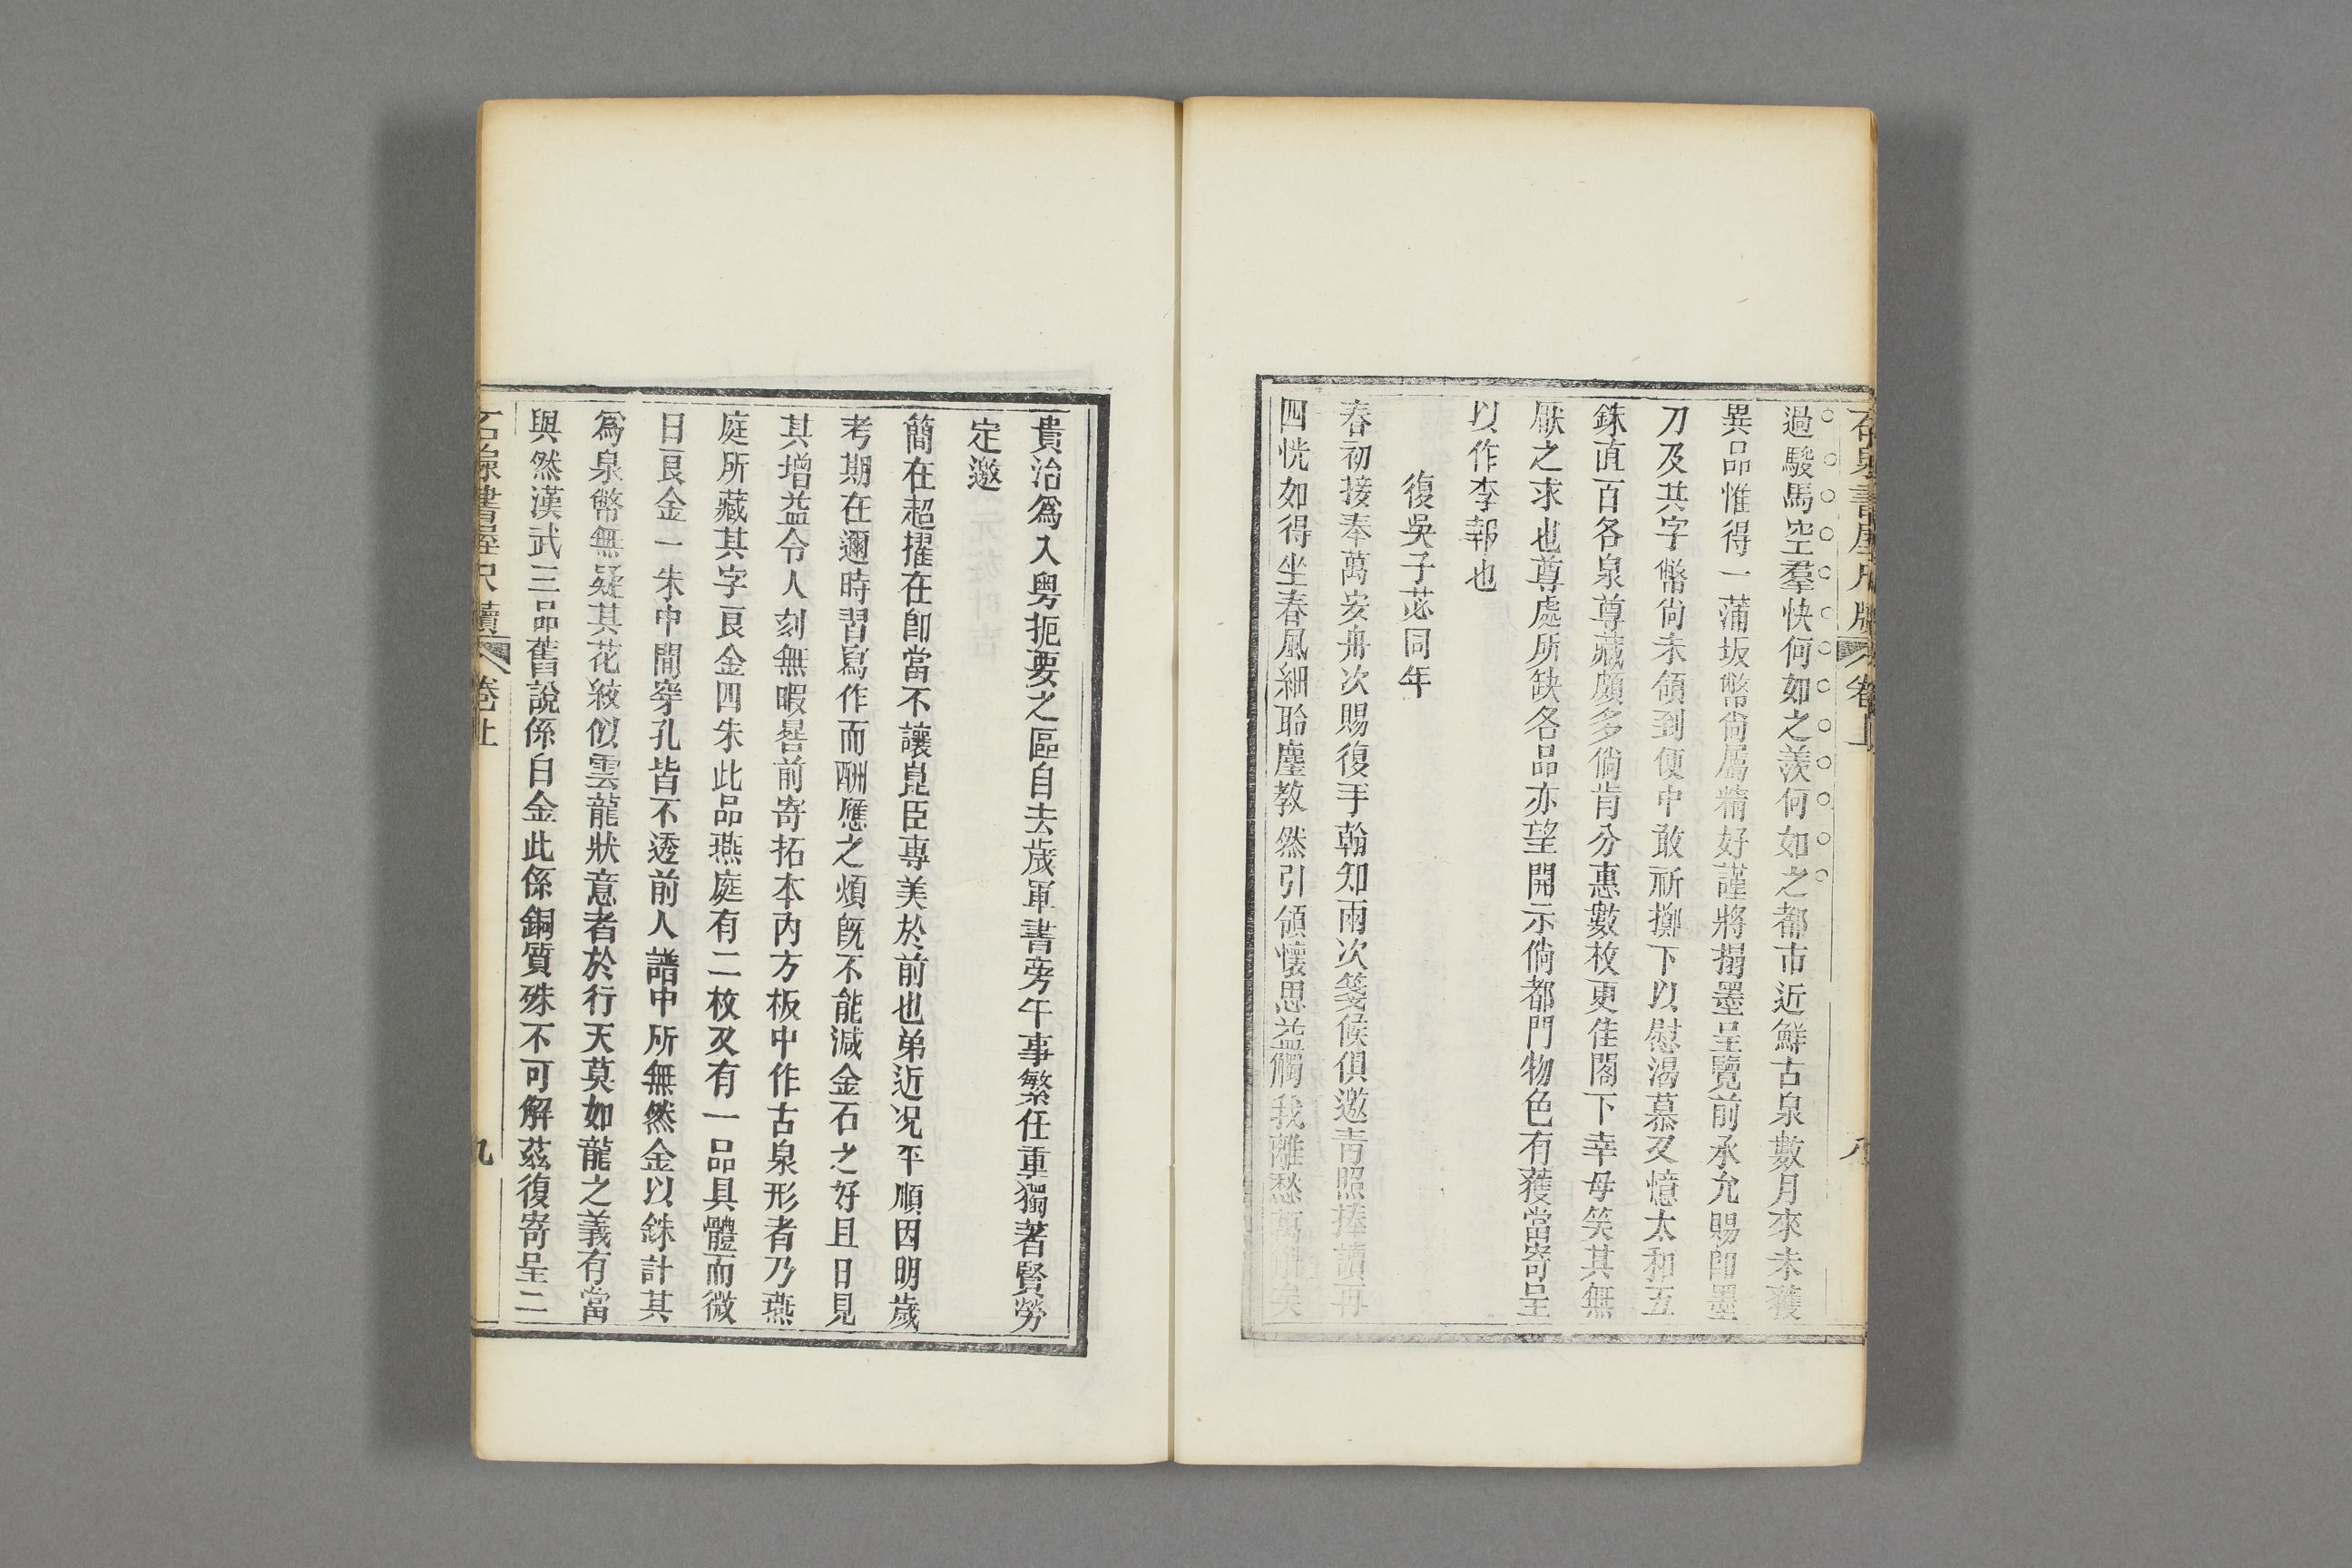 過駿馬空羣快何如之羨何如之都市近鮮古泉數月來未獲
異品惟得一蒲坂幣尙屬精好謹將搨墨呈覽前承允賜卽墨
刀及共字幣尙未領到便中敢祈擲下以慰渴慕又憶太和五
銖直百各泉尊藏頗多倘肯分惠數枚更佳閣下幸毋笑其無
厭之求也尊處所缺各品亦望開示倘都門物色有獲當寄呈
以作李報也
復吳子苾同年
春初接奉萬安舟次賜復手翰知雨次箋候俱邀青照捧讀再
四恍如得坐春風細聆麈教然引領懷思益觸我離愁萬斛矣
卷上
八
貴治爲入粵扼要之區自去歲軍書旁午事繁任重獨著賢勞
定邀
簡在超擢在卽當不讓崑臣專美於前也弟近况平順因明歲
考期在邇時習寫作而酬應之煩旣不能減金石之好且日見
其增益令人刻無暇晷前寄拓本內方板中作古泉形者乃燕
庭所藏其字艮金四朱此品燕庭有二枚又有一品具體而微
曰艮金一朱中閒穿孔皆不透前人譜中所無然金以銖計其
爲泉幣無疑其花紋似雲龍狀意者於行天莫如龍之義有當
與然漢武三品舊說係白金此係銅質殊不可解茲復寄呈二
書屋尺牘 卷上
九